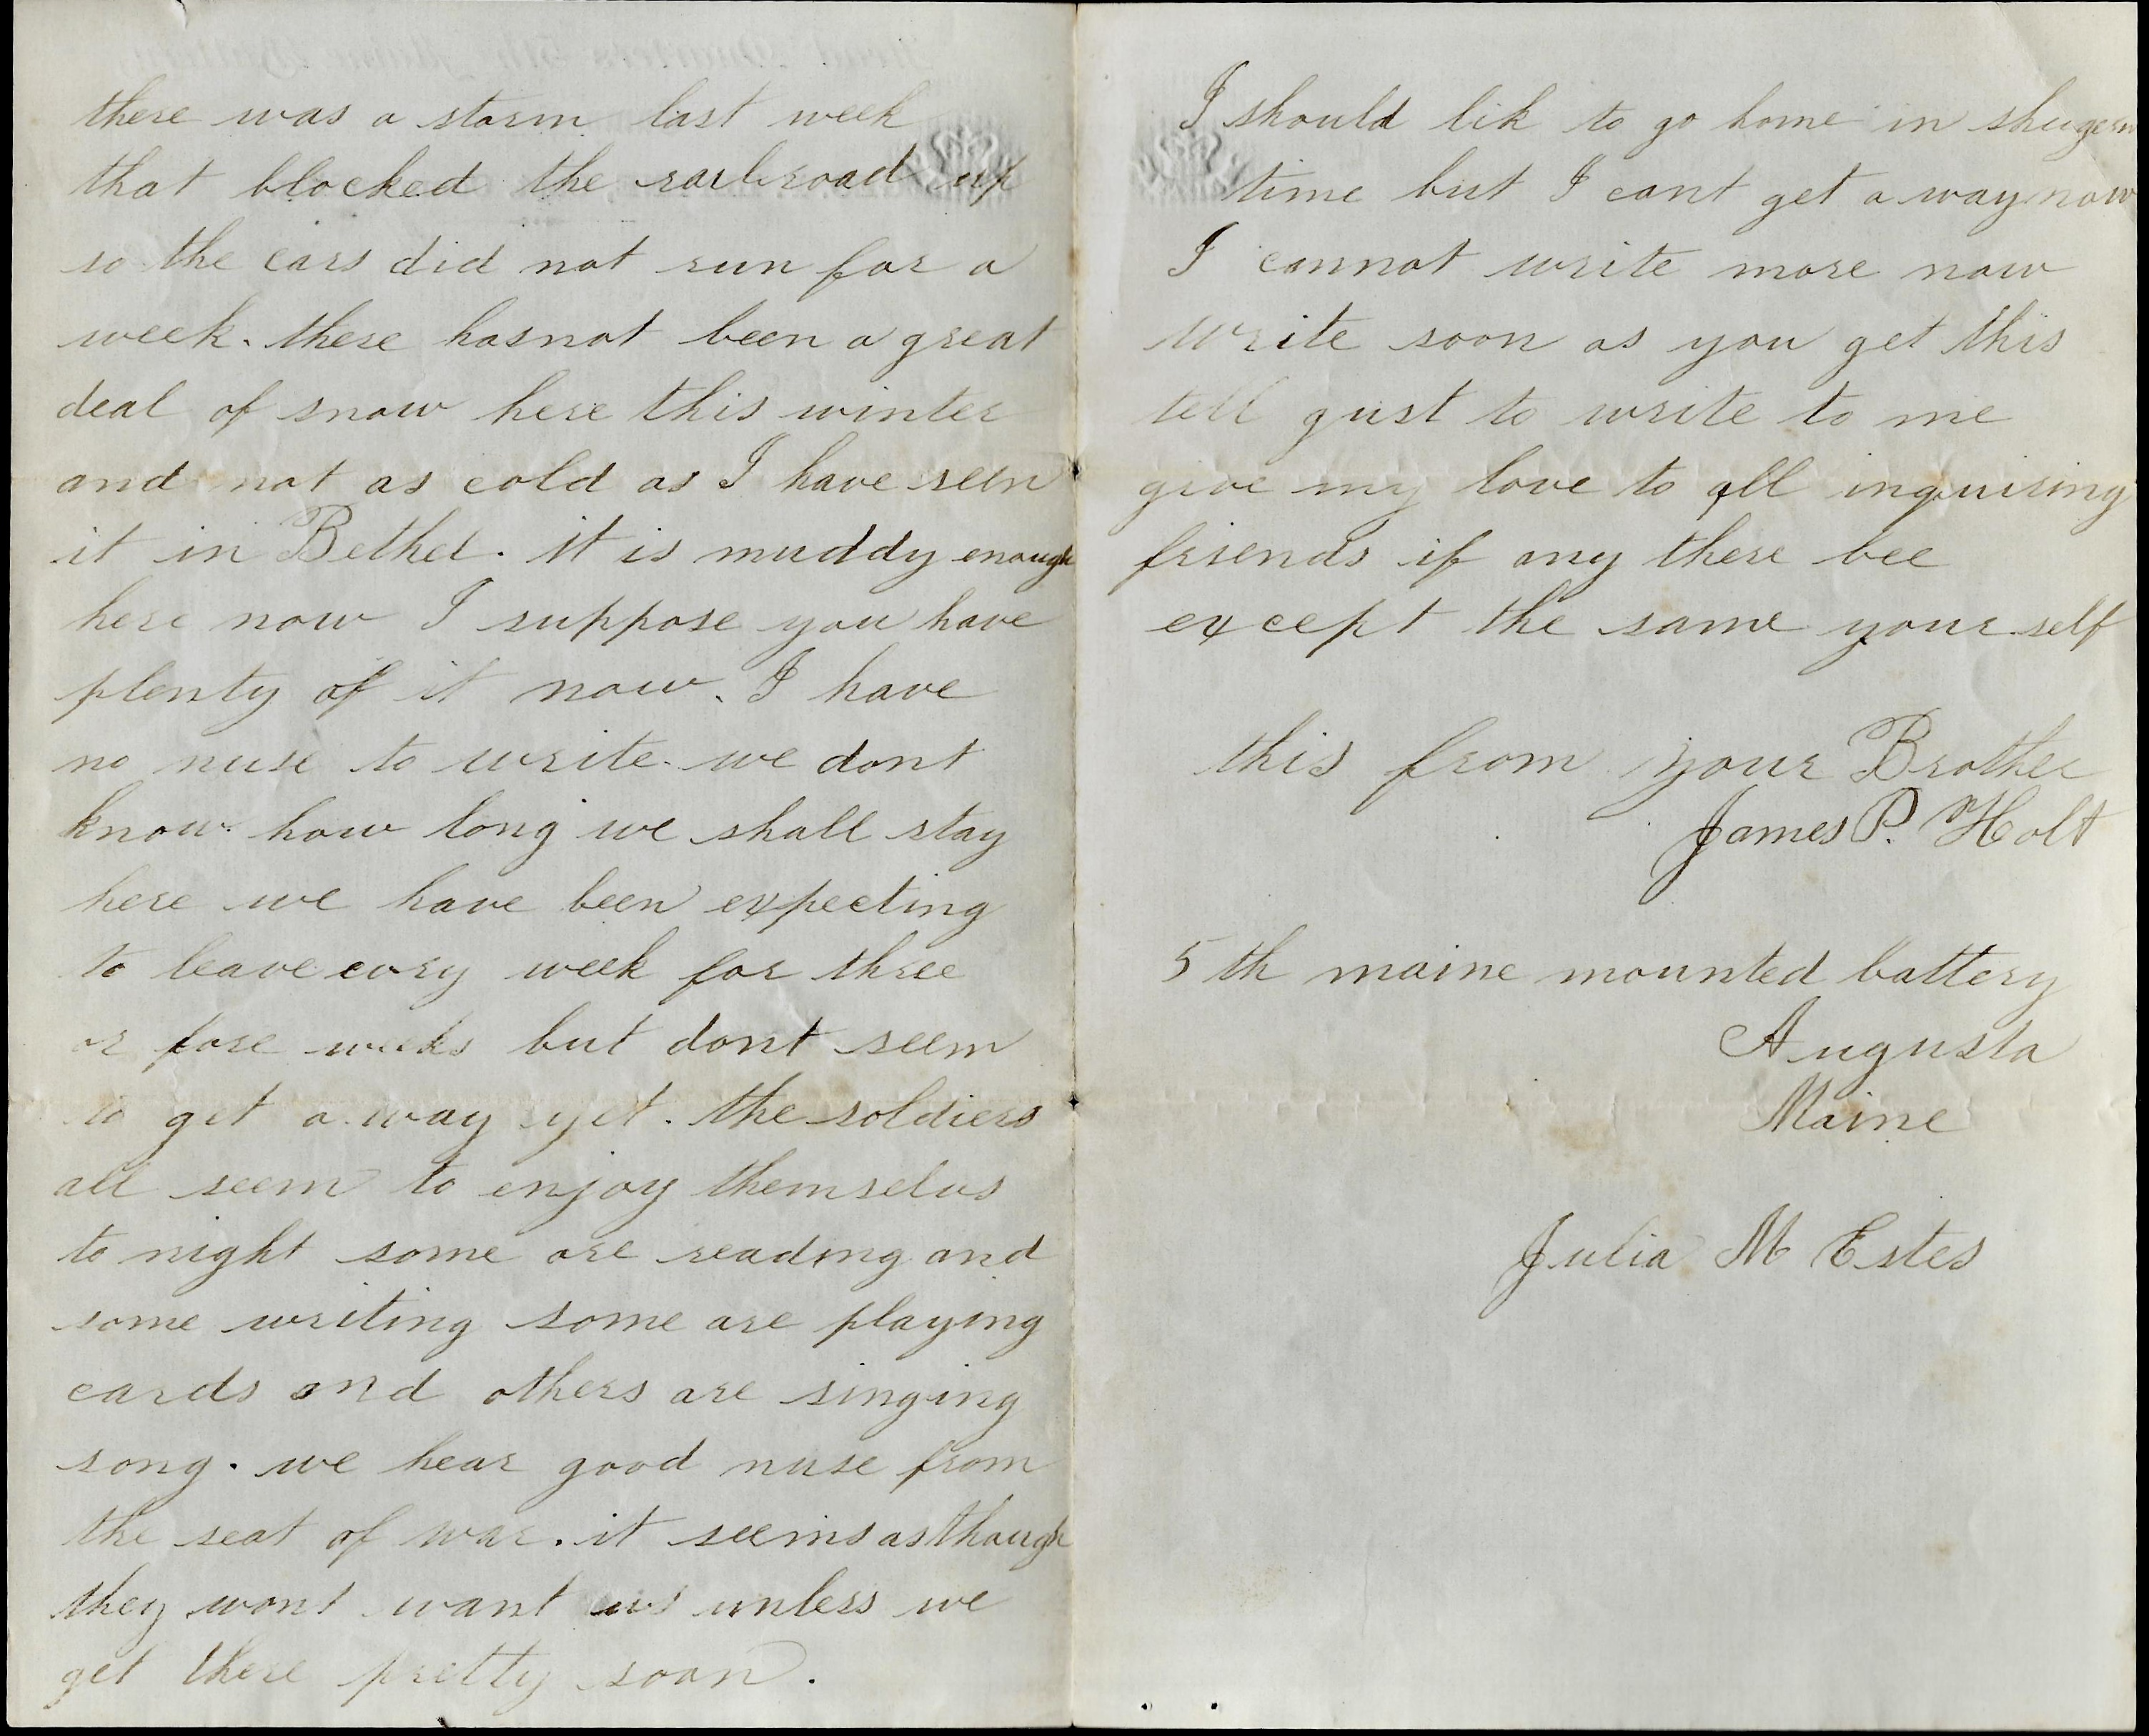 there was a storm last week
that blocked the railroad up
so the cars did not run for a
week. there hasnot been a great
deal of snow here this winter
and not as cold as I have seen
it in Bethel. it is muddy enough
here now I suppose you have
plenty of it now. I have
no nuse to write. we dont
know how long we shall stay
here we have been expecting
to leave evry week for three
or fore weeks but dont seem
to get a way yet. the soldiers
all seem to enjoy themselvs
to night some are reading and
some writing some are playing
cards and others are singing
song. we hear good nuse from
the seat of war. it seems as though
they wont want us unless we
get there pretty soon.
I should lik to go home in
time but I cant get a way now
I cannot write more now
write soon as you get this
tell gust to write to me
give my love to all inquiring
friends if any there bee
except the same your self
this from your Brother
James P. Holt
5th maine mounted battery
Augusta
Maine
Julia M Estes